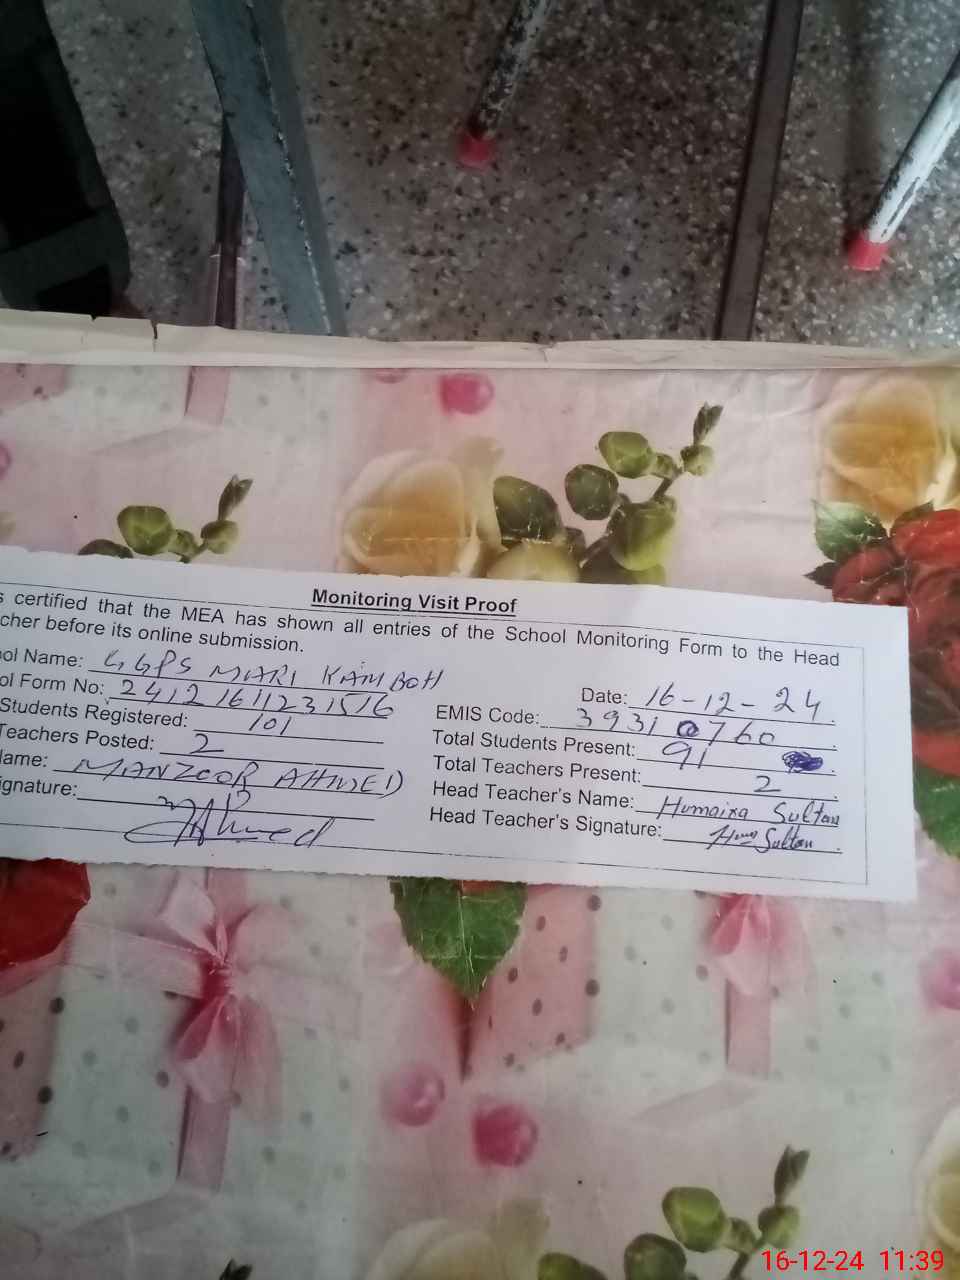 Monitoring Visit Proof
s certified that the MEA has shown all entries of the School Monitoring Form to the Head
cher before its online submission.
ool Name: GGPS MARI KAMBOH
Date: 16-12-24
ol Form No: 24121611231516
EMIS Code: 39310760
Students Registered: 101
Total Students Present: 91
Teachers Posted: 2
Total Teachers Present: 2
Name: MANZOOR AHMED
Head Teacher's Name: Humaira Sultan
ignature: Ahmed
Head Teacher's Signature: Sultan
16-12-24 11:39